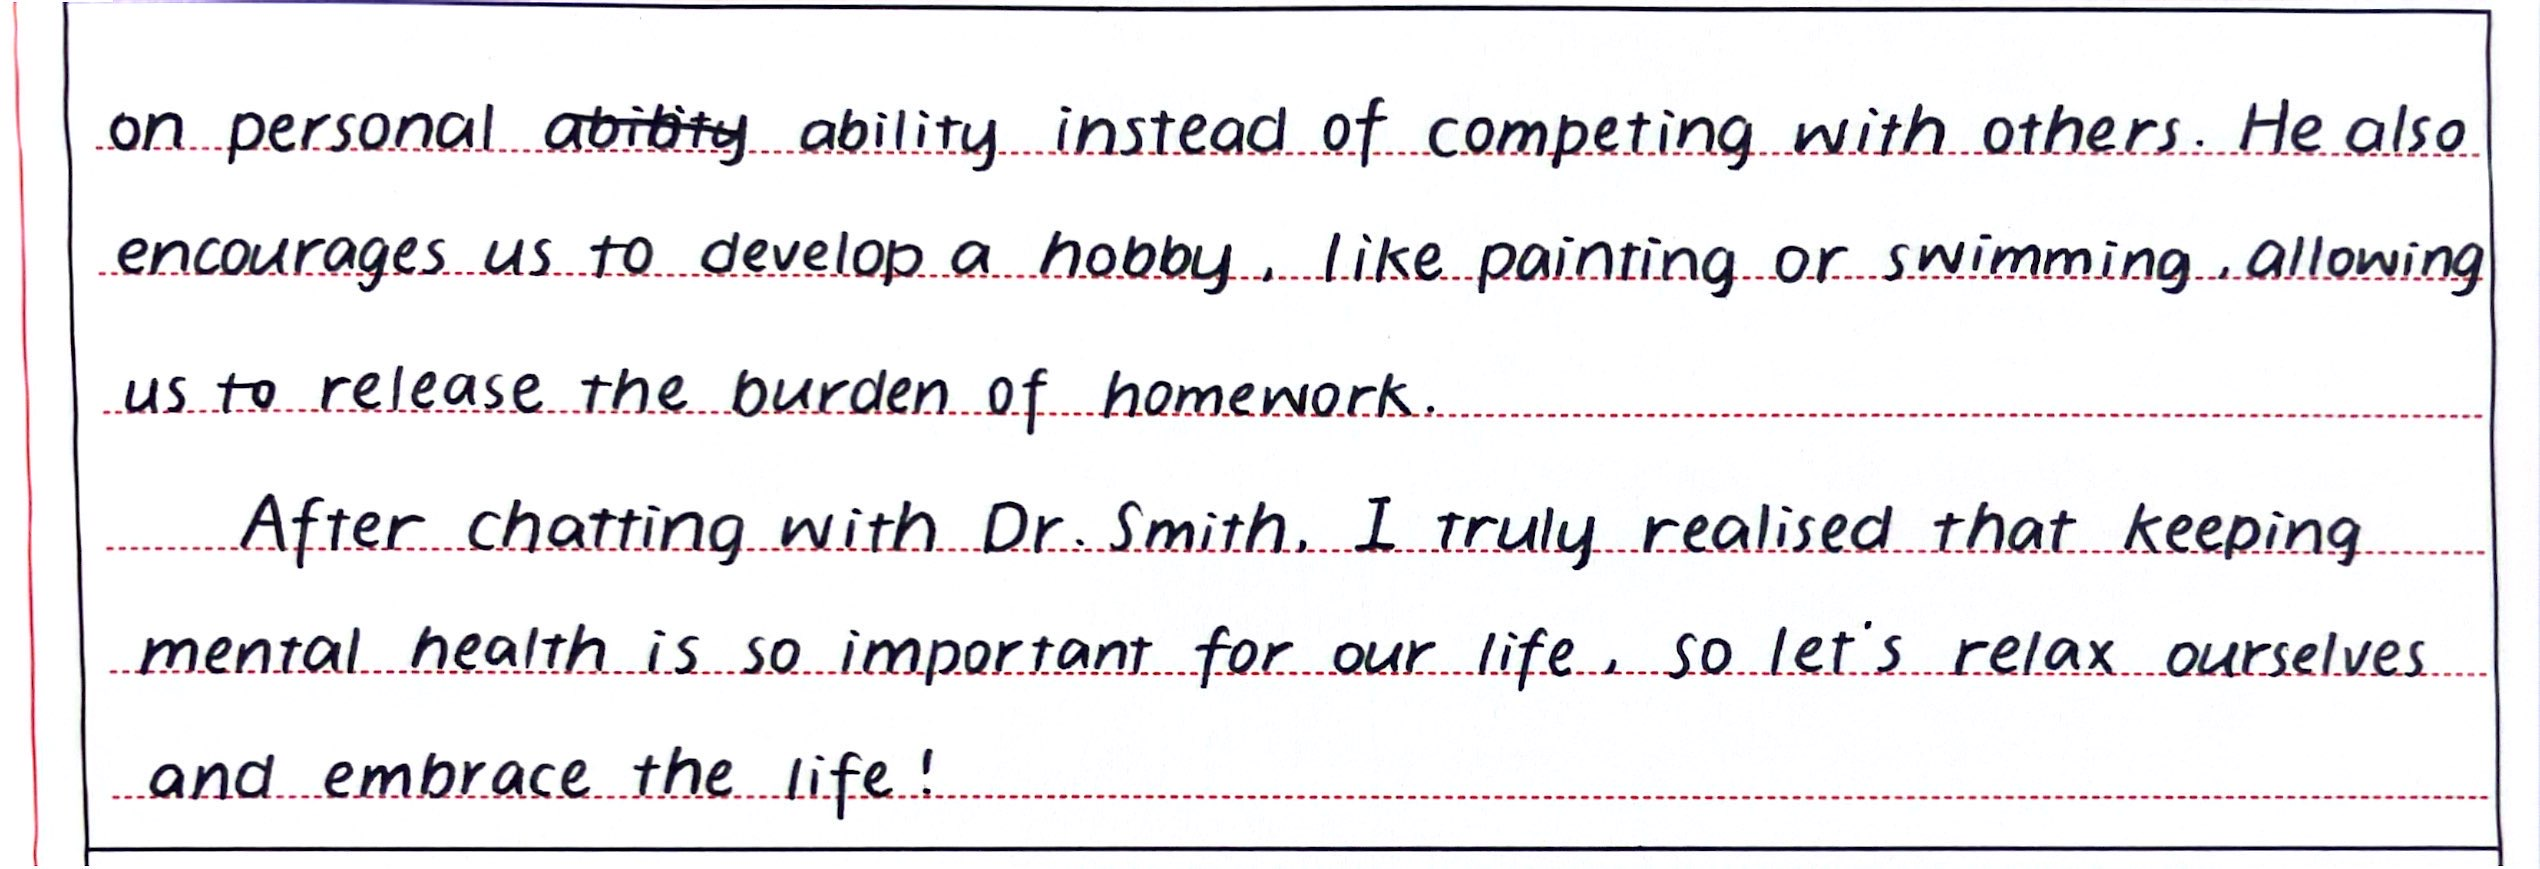 on personal ability instead of competing with others. He also
encourages us to develop a hobby, like painting or swimming, allowing
us to release the burden of homework.
After chatting with Dr. Smith, I truly realised that keeping
mental health is so important for our life, so let's relax ourselves
and embrace the life!